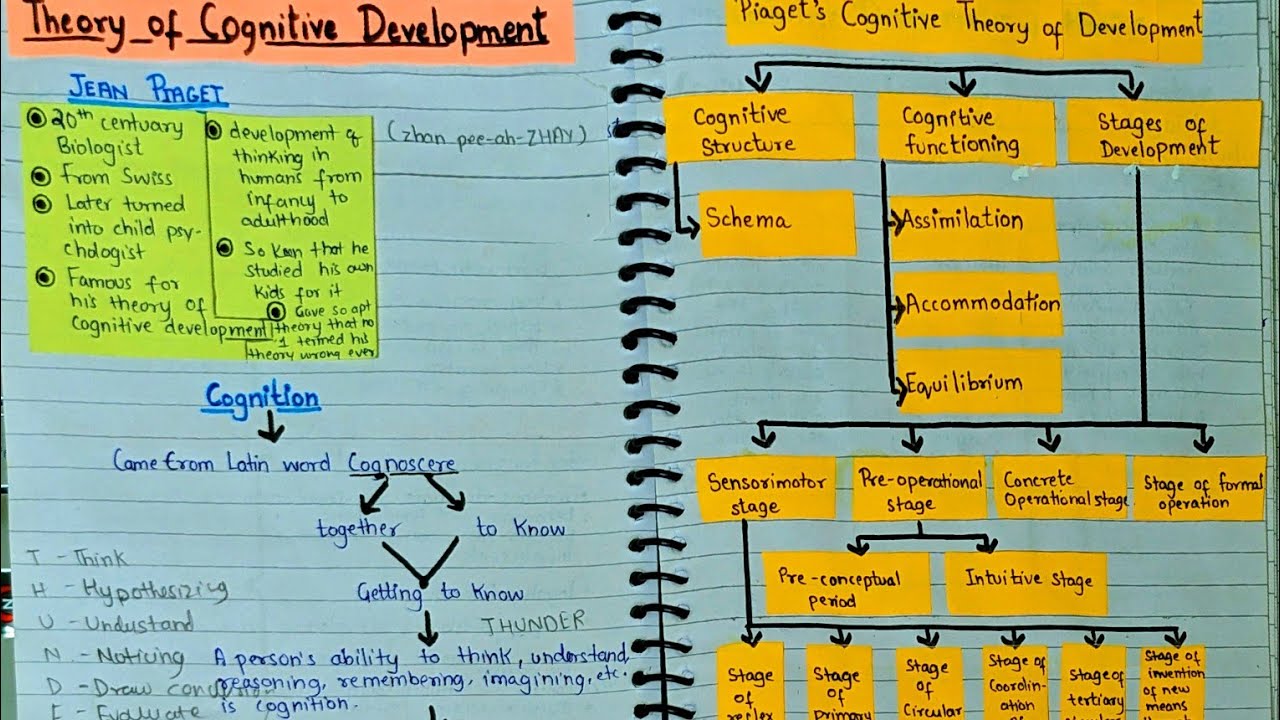 Theory of Cognitive Development
JEAN PIAGET
20th centuary
Biologist
From Swiss
Later turned
into child psy-
chologist
Famous for
his theory of
Cognitive development
development of
thinking in
humans from
infancy to
adulthood
So keen that he
studied his own
kids for it
Gave so apt
theory that no
1 termed his
theory wrong ever
(zhan pee-ah-ZHAY)
Cognition
Came from Latin word Cognoscere
together to know
Getting to know
THUNDER
T - Think
H - Hypothesizing
U - Undustand
N - Noticing
D - Draw
E - Evaluate
A person's ability to think, understand,
reasoning, remembering, imagining, etc.
is cognition.
Piaget's Cognitive Theory of Development
Cognitive
Structure
Cognitive
functioning
Stages of
Development
Schema
Assimilation
Accommodation
Equilibrium
Sensorimotor
stage
Pre-operational
stage
Concrete
Operational stage
Stage of formal
operation
Pre-conceptual
period
Intuitive stage
Stage
of
reflex
Stage
of
primary
Stage
of
Circular
Stage of
Coordin-
ation
Stage of
tertiary
Stage of
invention
of new
means